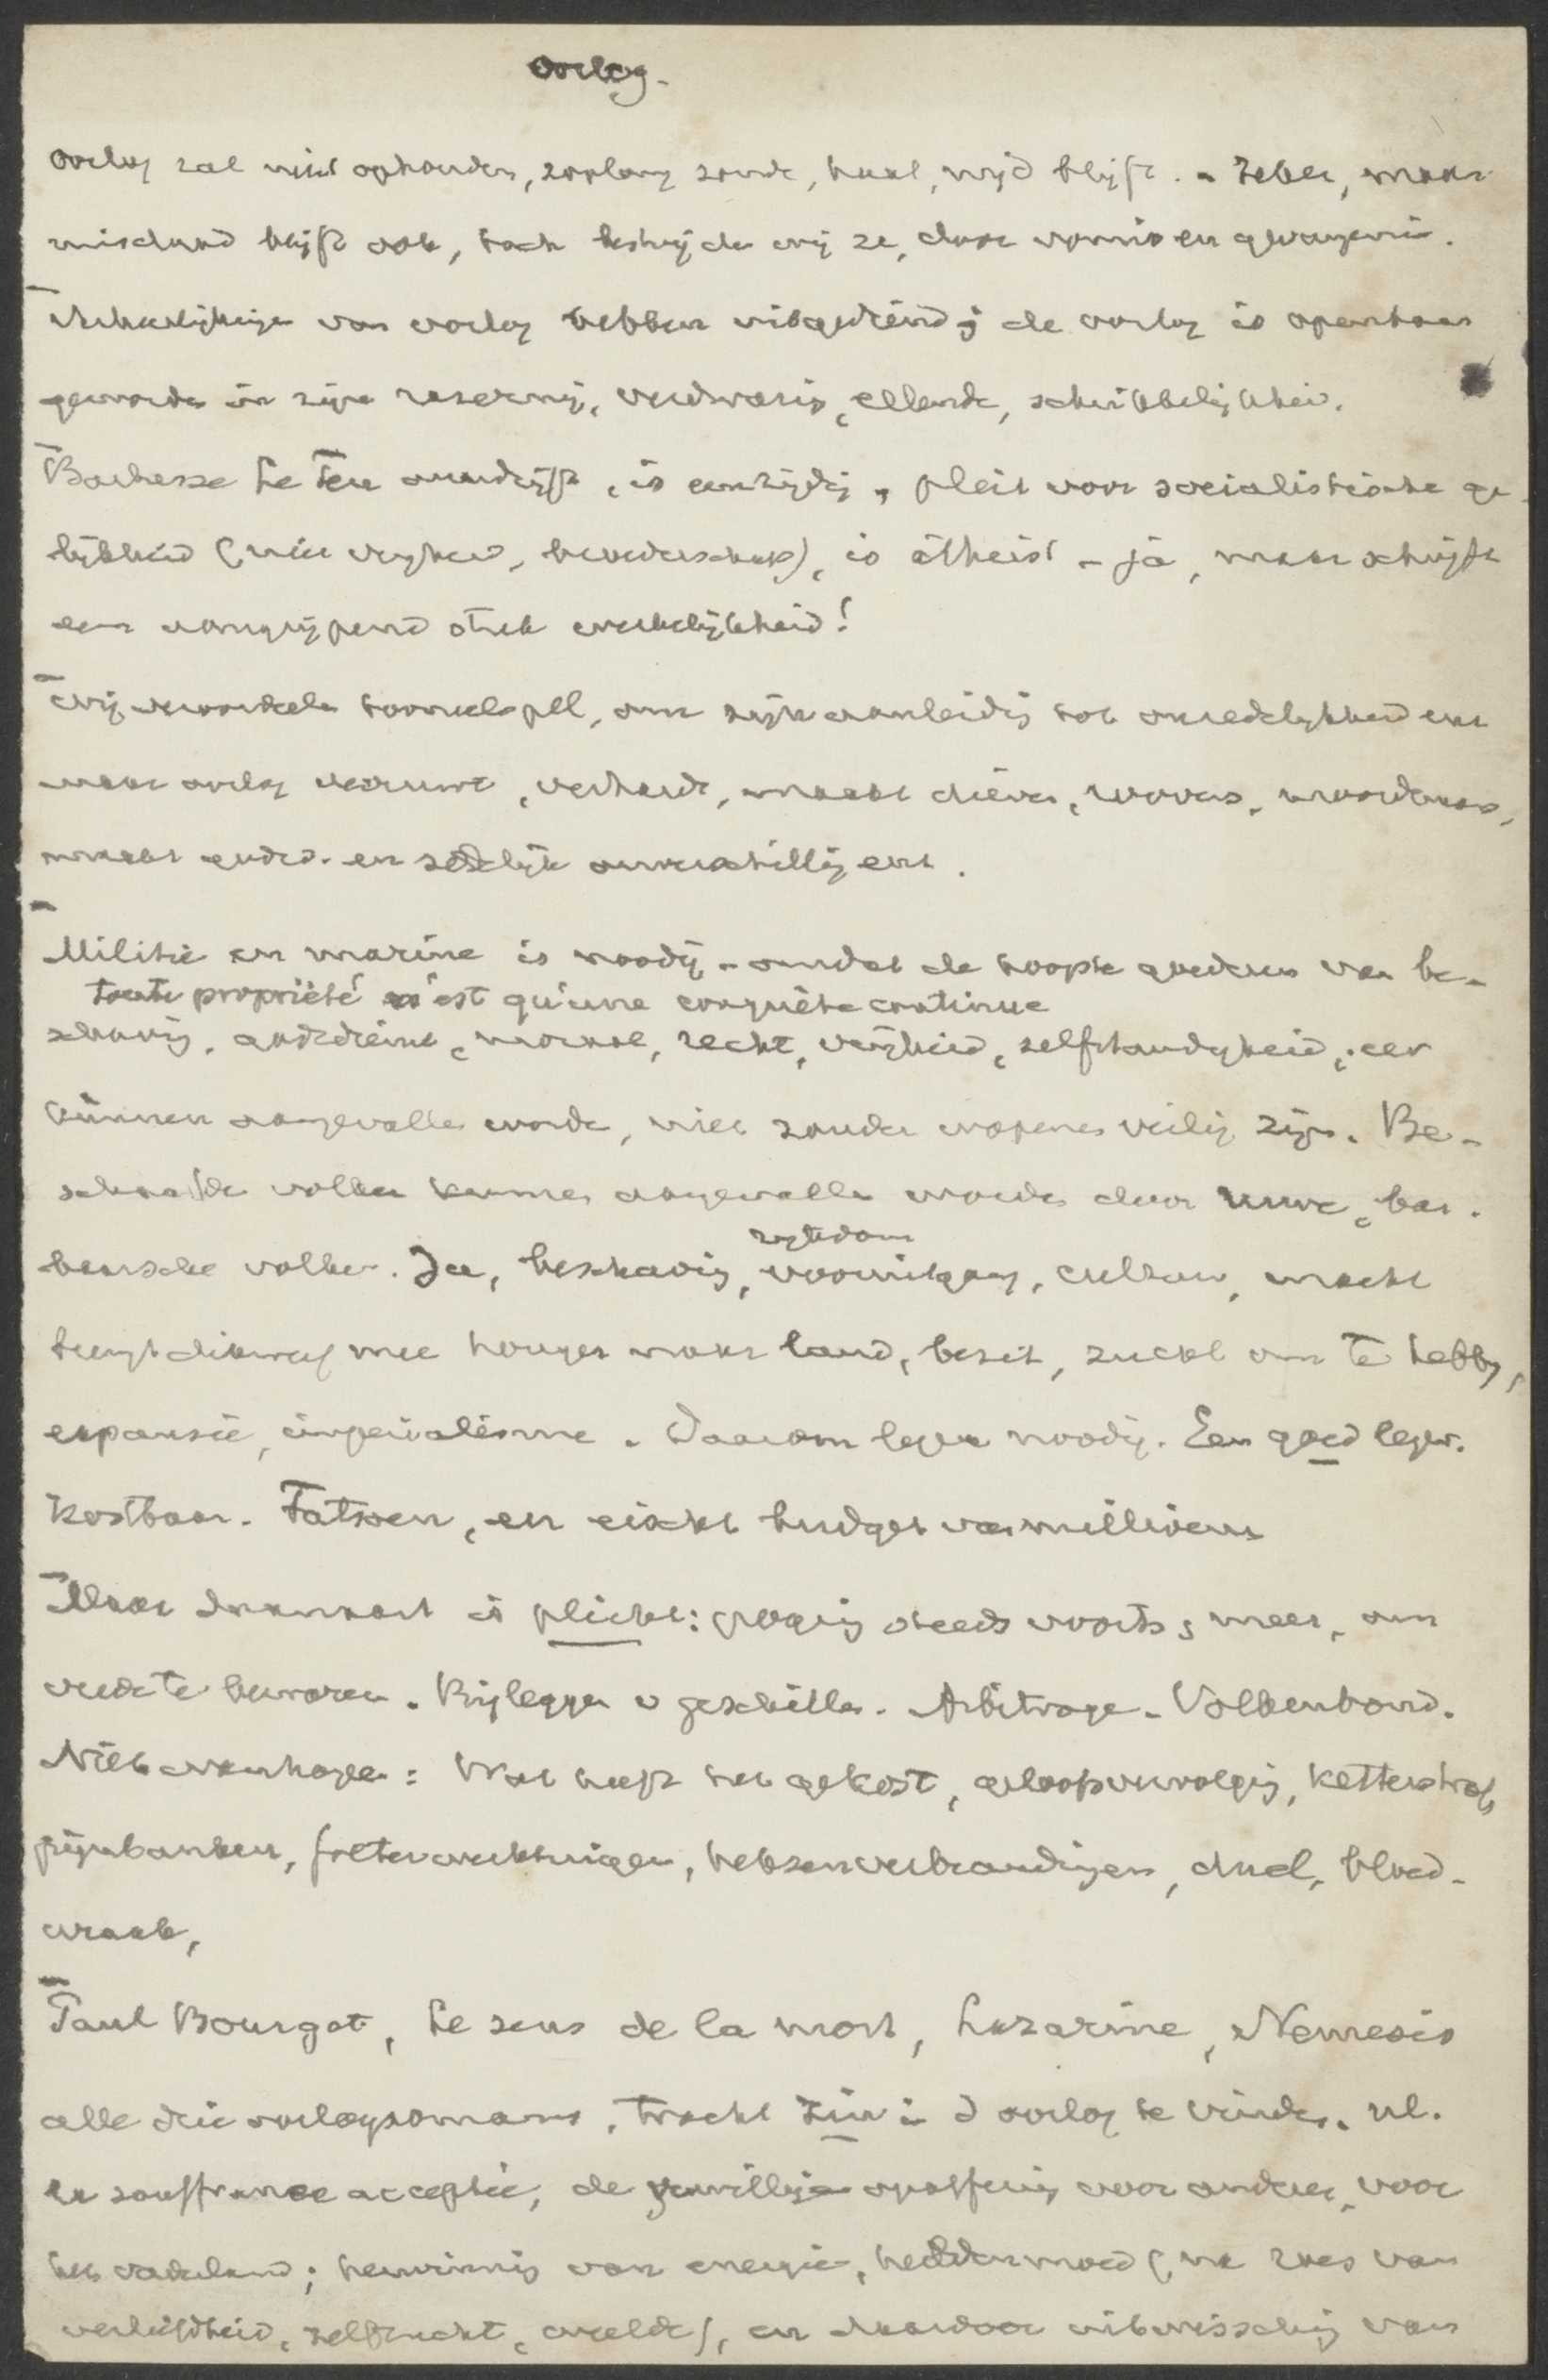 Oorlog.
Oorlog zal niet ophouden, zoolang zonde, haat, nijd blijft. - Zeker, maar
misdaad blijft ook, toch bestrijden wij ze, door vonnis en gevangenis.
Verheerlijkingen van oorlog hebben uitgediend; de oorlog is openbaar
geworden in zijn razernij, verdwazing, ellende, schrikkelijkheid.
Barbusse Le Feu overdrijft, is eenzijdig, pleit voor socialistische ge-
lijkheid (niet vrijheid, broederschap), is atheist - ja, maar schrijft
een aangrijpend stuk werkelijkheid!
Wij veroordeelen tooneelspel, om zijn aanleiding tot onzedelijkheid enz
maar oorlog verruwt, verhardt, maakt dieven, roovers, moordenaars,
maakt godsd. en zedelijk onverschillig enz.
Militie en marine is noodig - omdat de hoogste goederen van be-
toute propriété n'est qu'une conquête continue
schaving, godsdienst, moraal, recht, vrijheid, zelfstandigheid, eer
kunnen aangevallen worden, niet zonder wapenen veilig zijn. Be-
schaafde volken kunnen aangevallen worden door ruwe, bar-
baarsche volken. Ja, beschaving, vooruitgang, cultuur, macht
rijkdom
brengt dikwerf mee honger naar land, bezit, zucht om te hebben,
expansie, imperialisme. Daarom leger noodig. Een goed leger.
Kostbaar. Fatsoen, en eischt budget van millioenen
Maar daarnaast is plicht: poging steeds voorts; meer, om
vrede te bewaren. Bijleggen v geschillen. Arbitrage. Volkenbond.
Niet wanhopen: Wat heeft het gekost, geloofsvervolging, ketterstraf,
pijnbanken, folterwerktuigen, heksenverbrandingen, duel, bloed-
wraak,
Paul Bourget, Le sens de la mort, Lazarine, Nemesis
alle drie oorlogsromans, tracht zin in d oorlog te vinden. nl.
la souffrance acceptée, de vrijwillige opoffering voor anderen, voor
het vaderland; herwinning van energie, heldenmoed (na roes van
verliefdheid, zelfzucht, weelde), en daardoor uitwissching van